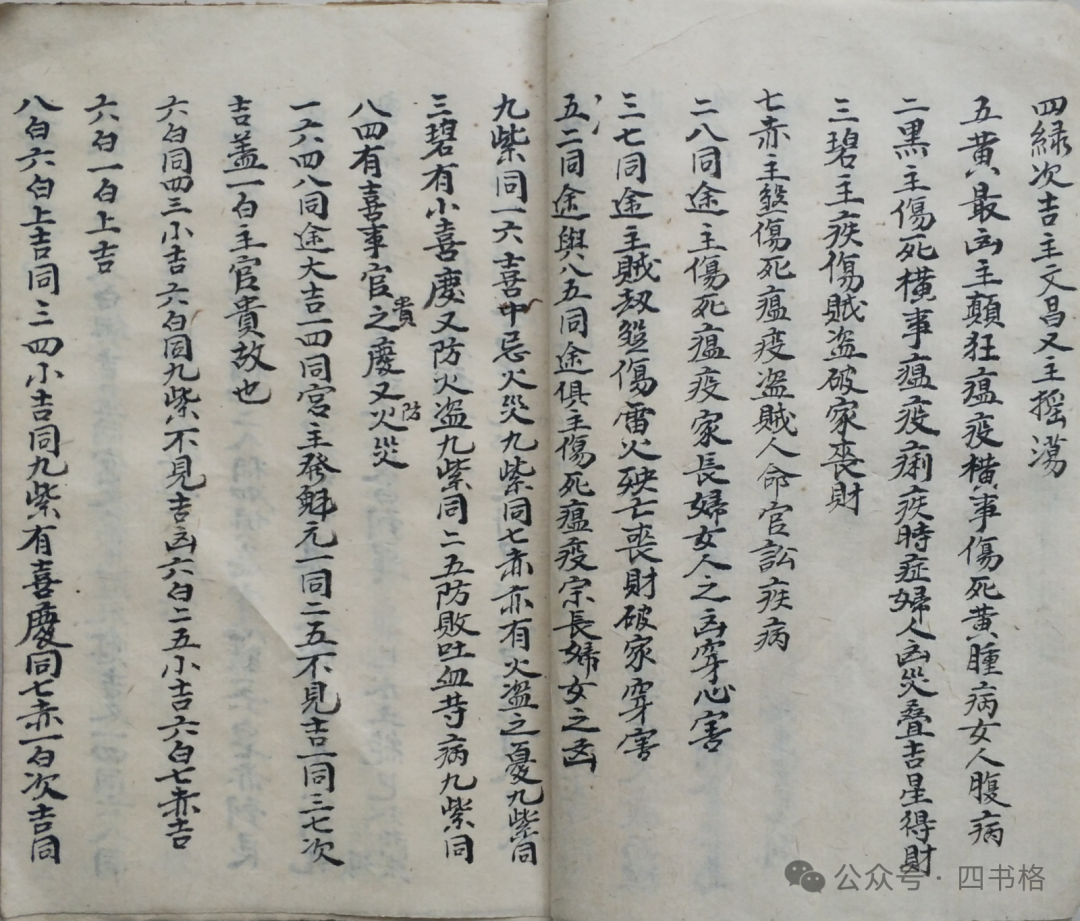 四緑次吉主文昌又主摇蕩
五黄最凶主顛狂瘟疫横事傷死黄腫病女人腹病
二黒主傷死横事瘟疫痢疾時症婦人凶災叠吉星得財
三碧主疾傷賊盗破家喪財
七赤主煞傷死瘟疫盗賊人命官訟疾病
二八同途主傷死瘟疫家長婦女人之凶穿心害
三七同途主賊劫煞傷雷火殃亡喪財破家穿害
五二同途與八五同途俱主傷死瘟疫宗長婦女之凶
九紫同一六喜中忌火災九紫同七赤亦有火盗之憂九紫同
三碧有小喜慶又防火盗九紫同二五防敗吐血等病九紫同
八四有喜事官貴之慶又防火災
一六四八同途大吉一四同宮主發魁元一同二五不見吉一同三七次
吉盖一白主官貴故也
六白同四三小吉六白同九紫不見吉凶六白二五小吉六白七赤吉
六白一白上吉
八白六白上吉同三四小吉同九紫有喜慶同七赤一白次吉同
公众号·四书格